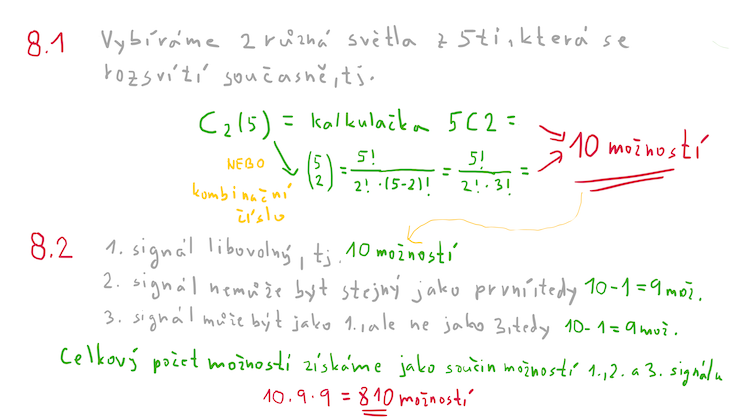 8.1 Vybíráme 2 různá světla z 5ti, která se
rozsvítí současně, tj.
C₂(5) = kalkulačka 5C2 =
NEBO
kombinační
číslo
(5 2) = 5! / 2!·(5-2)! = 5! / 2!·3! =
10 možností
8.2 1. signál libovolný, tj. 10 možností
2. signál nemůže být stejný jako první, tedy 10-1=9 mož.
3. signál může být jako 1., ale ne jako 3, tedy 10-1=9 mož.
Celkový počet možností získáme jako součin možností 1., 2. a 3. signálu
10.9.9 = 810 možností